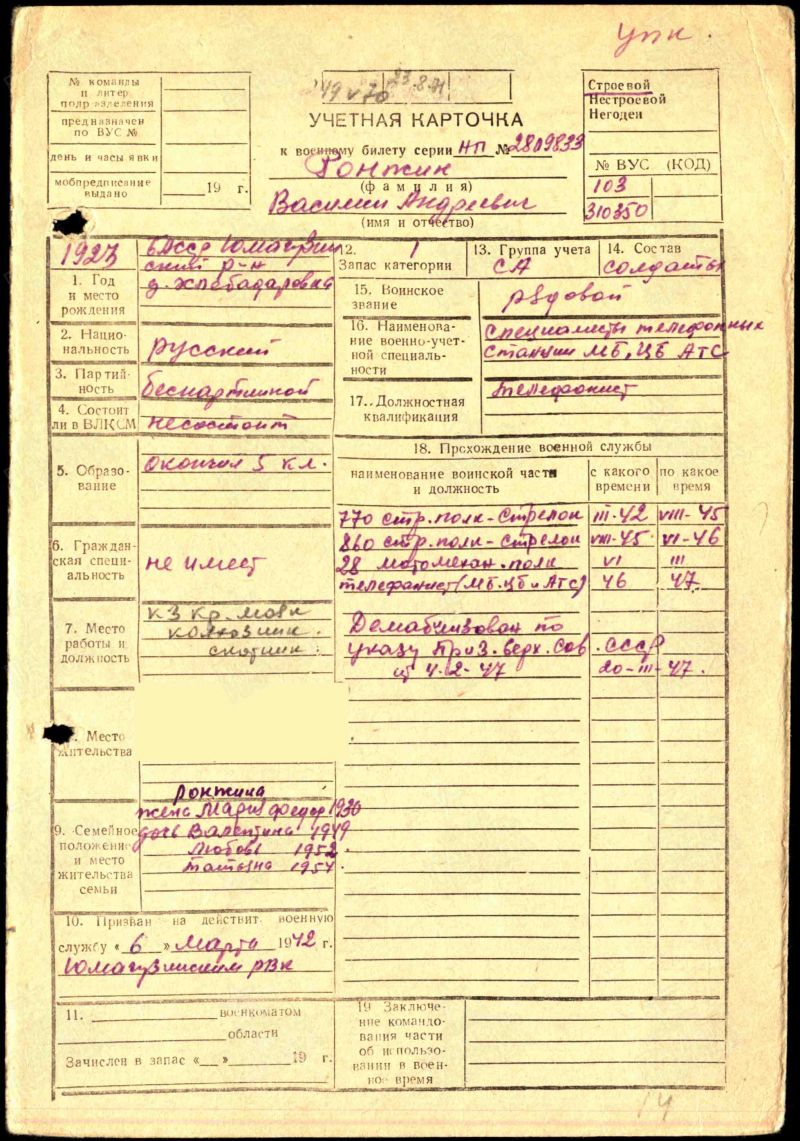 упк.
№ команды
и литер
подразделения
предназначен
по ВУС №
день и часы явки
мобпредписание
выдано
19 г.
23.8.71
УЧЕТНАЯ КАРТОЧКА
к военному билету серии НП № 2809833
Ронжин
(фамилия)
Василий Андреевич
(имя и отчество)
Строевой
Нестроевой
Негоден
№ ВУС (КОД)
103
310350
1923
БАССР Юмагузин
ский р-н
д. Хлебодаровка
1. Год
и место
рождения
2. Нацио-
нальность
русский
3. Партий-
ность
беспартийной
4. Состоит
ли в ВЛКСМ
несостоит
5. Образо-
вание
окончил 5 кл.
6. Граждан-
ская специ-
альность
не имеет
7. Место
работы и
должность
кз Кр. Маяк
колхозник.
скотник.
Место
жительства
9. Семейное
положение
и место
жительства
семьи
Ронжина
жена Мария Федор 1930
дочь Валентина 1949
Любовь 1952.
Татьяна 1957.
10. Призван на действит. военную
службу « 6 » Марта 1942 г.
Юмагузинским РВК
11. военкоматом
области
Зачислен в запас « » 19 г.
12. 1
Запас категории
13. Группа учета
СА
14. Состав
солдаты
15. Воинское
звание
рядовой
16. Наименова-
ние военно-учет-
ной специаль-
ности
специалисты телефонных
станции МБ, ЦБ АТС
17. Должностная
квалификация
телефонист
18. Прохождение военной службы
наименование воинской части
и должность
с какого
времени
по какое
время
770 стр. полк - стрелок III-42 VIII-45
860 стр. полк - стрелок VIII-45 VI-46
28 мотомехан. полк VI III
телефанист (МБ. ЦБ и АТС) 46 47
Демабилизован по
указу През. верх. Сов. СССР
от 4-2-47 20-III-47.
19 Заключе-
ние командо-
вания части
об использо-
вании в воен-
ное время
14